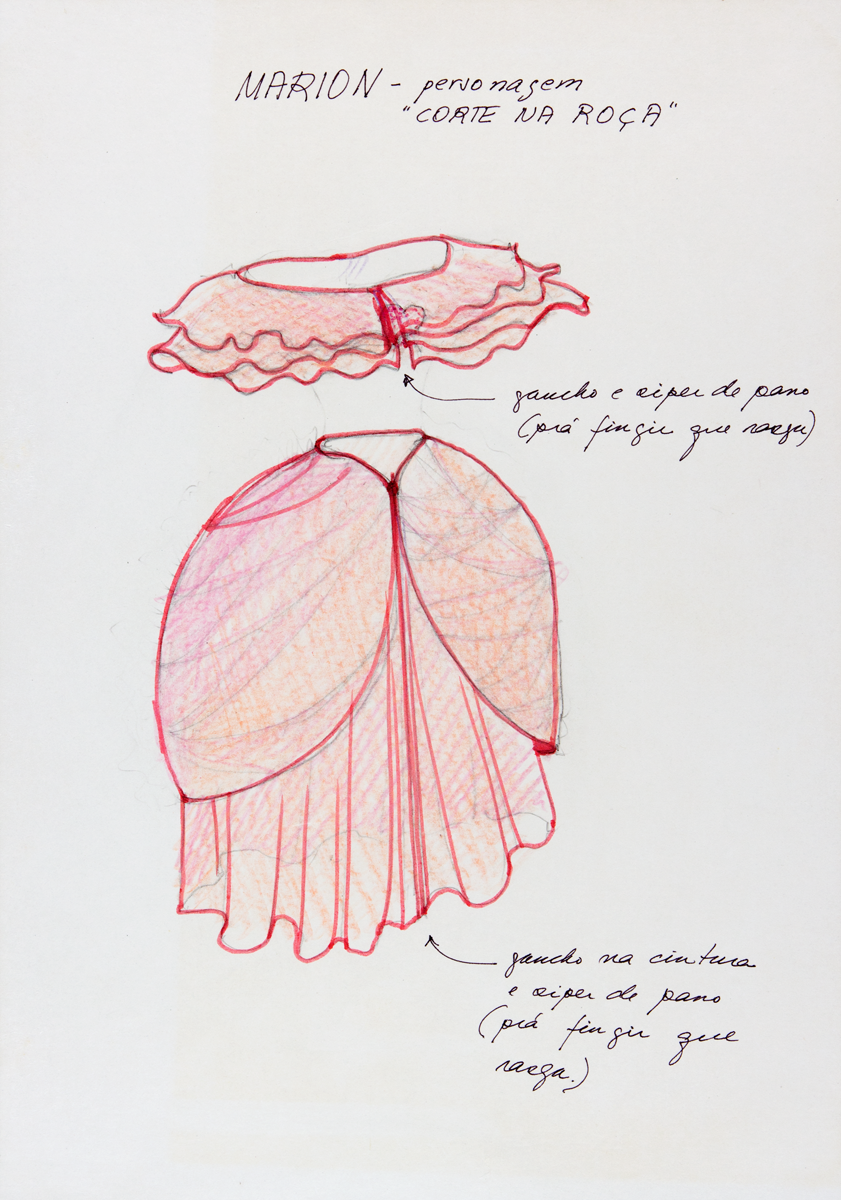 MARION - personagem
"CORTE NA ROÇA"
gancho e ziper de pano
(prá fingir que rasga)
gancho na cintura
e ziper de pano
(prá fingir que
rasga.)